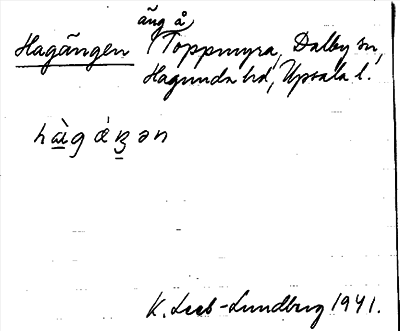 äng å
Hagängen (Toppmyra, Dalby sn,
Hagunda hd, Upsala l.
K. Leeb-Lundberg 1941.